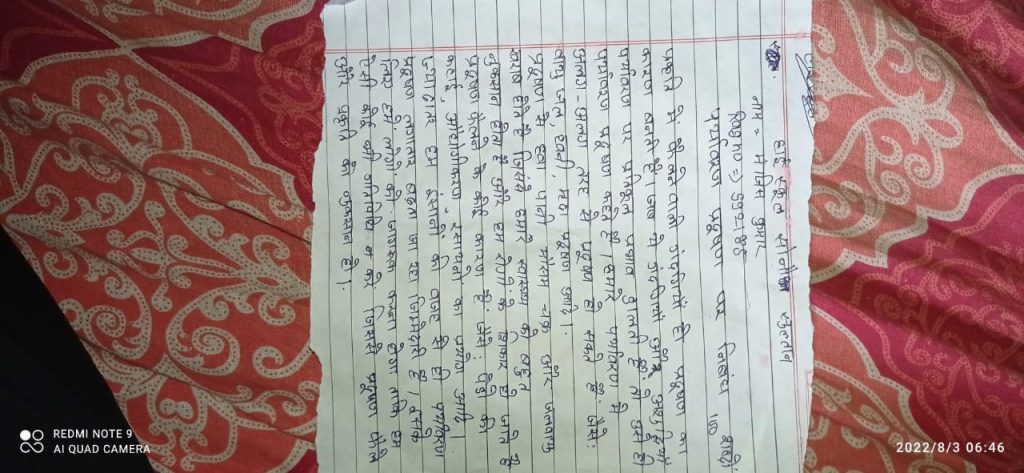 हाई स्कूल सुल्तान
नाम = मोहित कुमार
Reg no = 992185
पर्यावरण प्रदूषण पर निबंध 100 शब्दों
प्रकृति में फैलने वाली गंदगियाँ ही प्रदूषण का
कारण बनती है। जब ये गंदगियाँ और अशुद्धियाँ
पर्यावरण पर प्रतिकूल प्रभाव डालती है तो उसे ही
पर्यावरण प्रदूषण कहते है। हमारे पर्यावरण में
अलग-अलग तरह से प्रदूषण हो सकते है जैसे:
वायु जल, ध्वनी, मृदा प्रदूषण आदि।
प्रदूषण से हवा पानी मौसम चक्र और जलवायु
खराब होते है जिससे हमारे स्वास्थ्य को बहुत
नुकसान होता है और हम रोगो के शिकार हो जाते है
प्रदूषण फैलने के कई कारण है जैसे: पेड़ो की
कटाई, औद्योगिकरण, रसायनों का प्रयोग आदि।
ज्यादातर हम इंसानों की वजह से ही पर्यावरण
प्रदूषण लगातार बढ़ता जा रहा जिम्मेदारी है। इसके
लिए हमे लोगों को जागरूक करना होगा ताकि हम
ऐसी कोई की गतिविधि न करे जिससे प्रदूषण फैले
और प्रकृति को नुकसान हो।
REDMI NOTE 9
AI QUAD CAMERA
2022/8/3 06:46